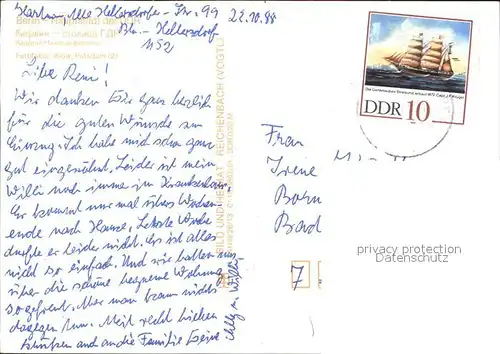 Alte Hellersdorfer Str. 99 22.10.88
Bln.-Hellersdorf
1152
Berlin - Hauptstadt der DDR
Берлин — столица ГДР
Liebe Reni!
Wir danken Dir ganz herzlich
für die guten Wünsche zum
Einzug. Ich habe mich schon ganz
gut eingewöhnt. Leider ist mein
Willi noch immer im Krankenhaus.
Er kommt nur mal übers Wochen-
ende nach Hause. Letzte Woche
durfte er leider nicht. Es ist alles
nicht so einfach. Und wir hatten uns
über die schöne bequeme Wohnung
so gefreut. Aber man kann nichts
dagegen tun. Mit recht lieben
Grüßen auch an die Familie Deine
u. Willi
BILD UND HEIMAT REICHENBACH (VOGTL)
DDR 10
Frau
Irene
Born
Bad
7
privacy protection
Datenschutz